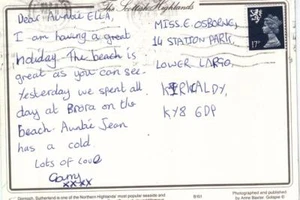 The Scottish Highlands
Dear Auntie Ella,
I am having a great
holiday. The beach is
great as you can see.
Yesterday we spent all
day at Brora on the
beach. Auntie Jean
has a cold
Lots of love
Garry
xxxx
MISS. E. OSBORNE,
14 STATION PARK,
LOWER LARGO,
KIRKALDY,
KY8 6DP
17
Dornoch, Sutherland is one of the Northern Highlands' most popular seaside and
Photographed and published by